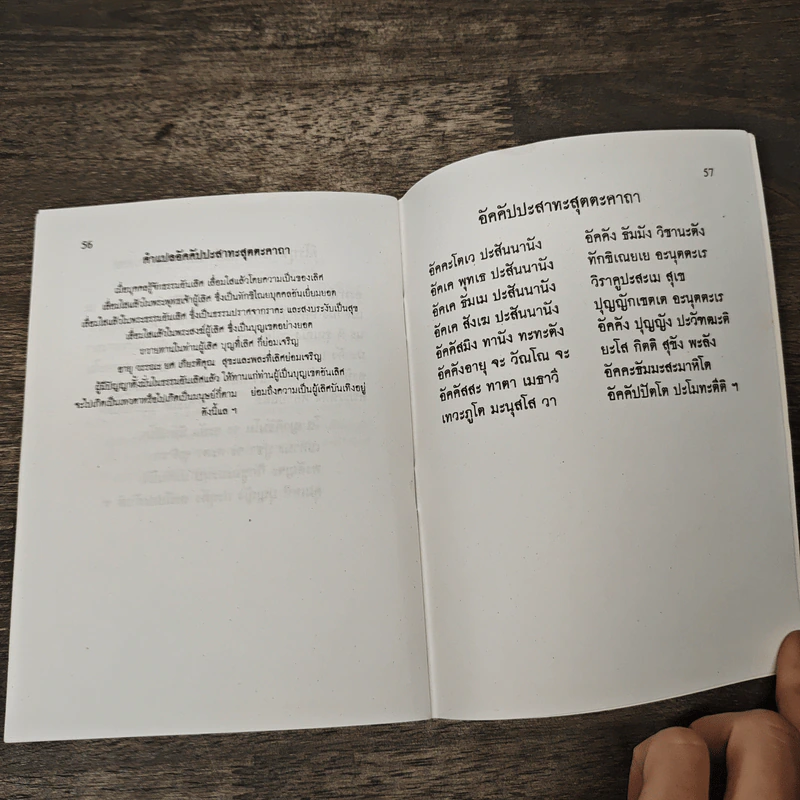 56
คำแปลอัคคัปปะสาทะสุตตะคาถา
เมื่อบุคคลรู้จักธรรมอันเลิศ เลื่อมใสแล้วโดยความเป็นของเลิศ
เลื่อมใสแล้วในพระพุทธเจ้าผู้เลิศ ซึ่งเป็นทักขิไณยบุคคลอันเยี่ยมยอด
เลื่อมใสแล้วในพระธรรมอันเลิศ ซึ่งเป็นธรรมปราศจากราคะ และสงบระงับเป็นสุข
เลื่อมใสแล้วในพระสงฆ์ผู้เลิศ ซึ่งเป็นบุญเขตอย่างยอด
ถวายทานในท่านผู้เลิศ บุญที่เลิศ ก็ย่อมเจริญ
อายุ วรรณะ ยศ เกียรติคุณ สุขะและพละที่เลิศย่อมเจริญ
ผู้มีปัญญาตั้งมั่นในธรรมอันเลิศแล้ว ให้ทานแก่ท่านผู้เป็นบุญเขตอันเลิศ
จะไปเกิดเป็นเทวดาหรือไปเกิดเป็นมนุษย์ก็ตาม ย่อมถึงความเป็นผู้เลิศบันเทิงอยู่
ดังนี้แล ฯ
57
อัคคัปปะสาทะสุตตะคาถา
อัคคะโตเว ปะสันนานัง อัคคัง ธัมมัง วิชานะตัง
อัคเค พุทเธ ปะสันนานัง ทักขิเณยเย อะนุตตะเร
อัคเค ธัมเม ปะสันนานัง วิราคูปะสะเม สุเข
อัคเค สังเฆ ปะสันนานัง ปุญญักเขตเต อะนุตตะเร
อัคคัสมิง ทานัง ทะทะตัง อัคคัง ปุญญัง ปะวัฑฒะติ
อัคคังอายุ จะ วัณโณ จะ ยะโส กิตติ สุขัง พะลัง
อัคคัสสะ ทาตา เมธาวี อัคคะธัมมะสะมาหิโต
เทวะภูโต มะนุสโส วา อัคคัปปัตโต ปะโมทะตีติ ฯ